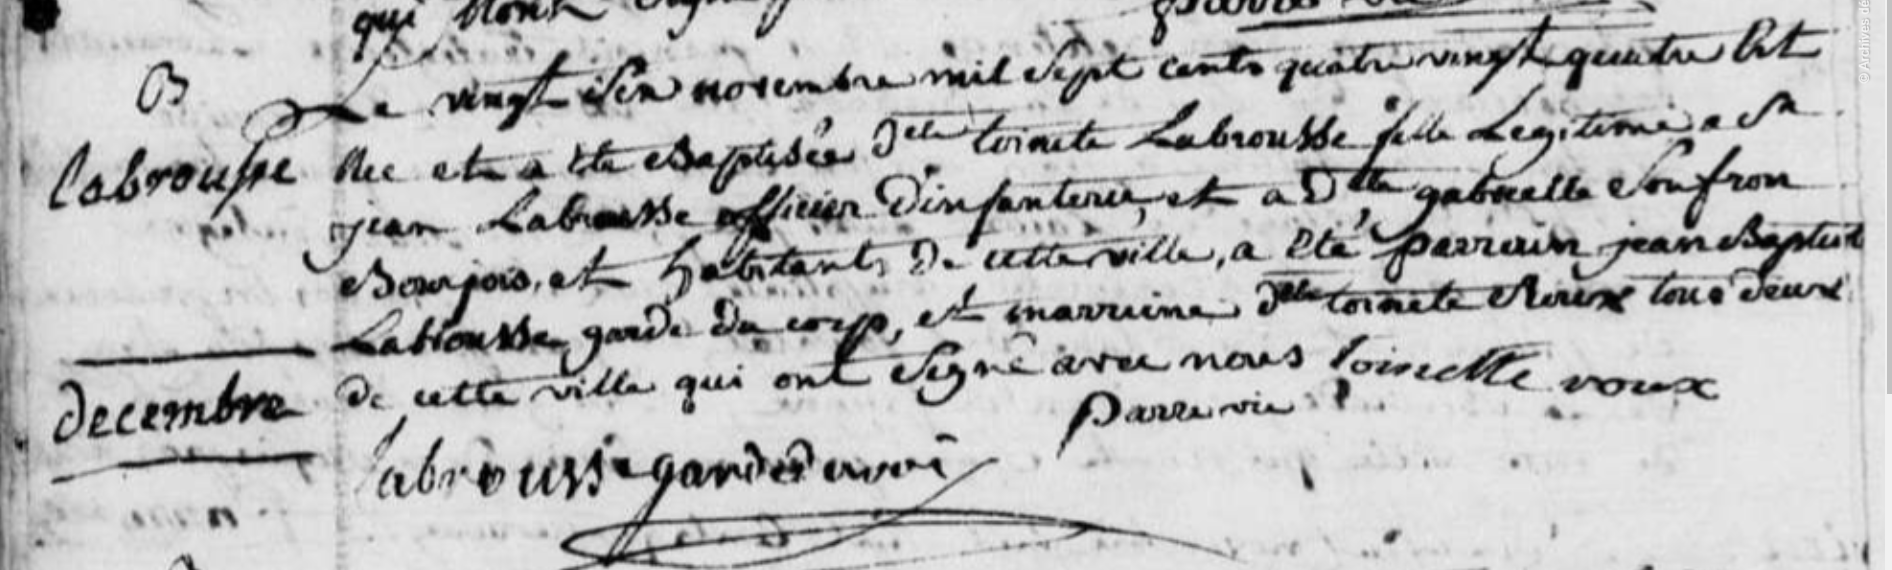 qui
B
Labrousse
Le vingt six novembre mil sept cents quatre vingt quatre Est
Née et a été Baptisée Dlle toinete Labrousse fille Legitime a Sr
jean Labrousse officier D'infanterie, et a Dlle gabrielle Soufron
Bourjois, et habitants De cette ville, a Eté parrein jean Baptist
Labrousse garde Du corp, et marreine Dlle toinete Roux tous deux
de cette ville qui ont Signé avec nous toinette roux
Parrevie
decembre
labrousse garde du roi
© Archives dé